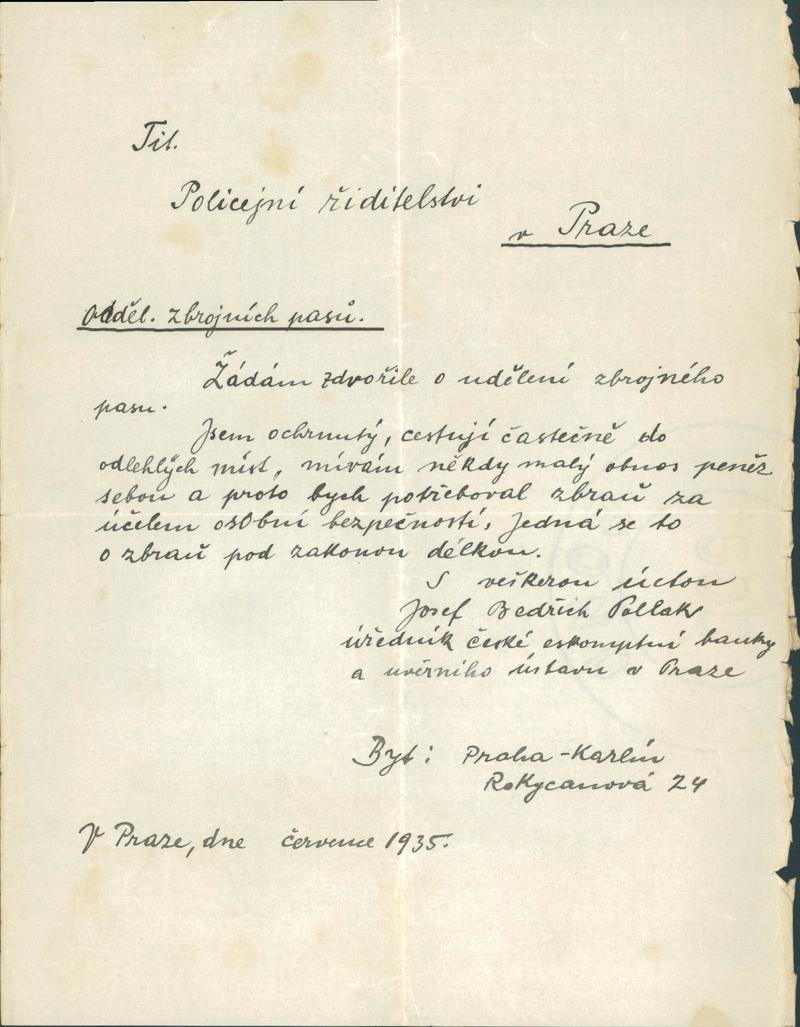 Tit.
Policejní řiditelstvi
v Praze
Odděl. zbrojních pasů.
Žádám zdvořile o udělení zbrojného
pasu.
Jsem ochrnutý, cestují častečně do
odlehlých míst, mívám někdy malý obnos peněz
sebou a proto bych potřeboval zbraň za
účelem osobní bezpečností, Jedná se to
o zbraň pod zakonou délkou.
S veškerou úctou
Josef Bedřich Pollak
úředník české eskomptní banky
a uvěrního ústavu v Praze
Byt: Praha-Karlín
Rokycanová 24
V Praze, dne července 1935.